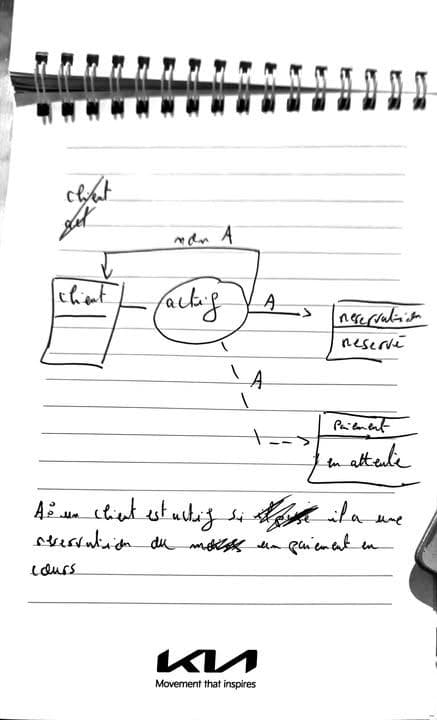 client
act
non A
client
actif
A
reservation
reservé
A
Paiement
en attente
A: un client est actif si il a une
reservation ou un paiement en
cours
KIA
Movement that inspires